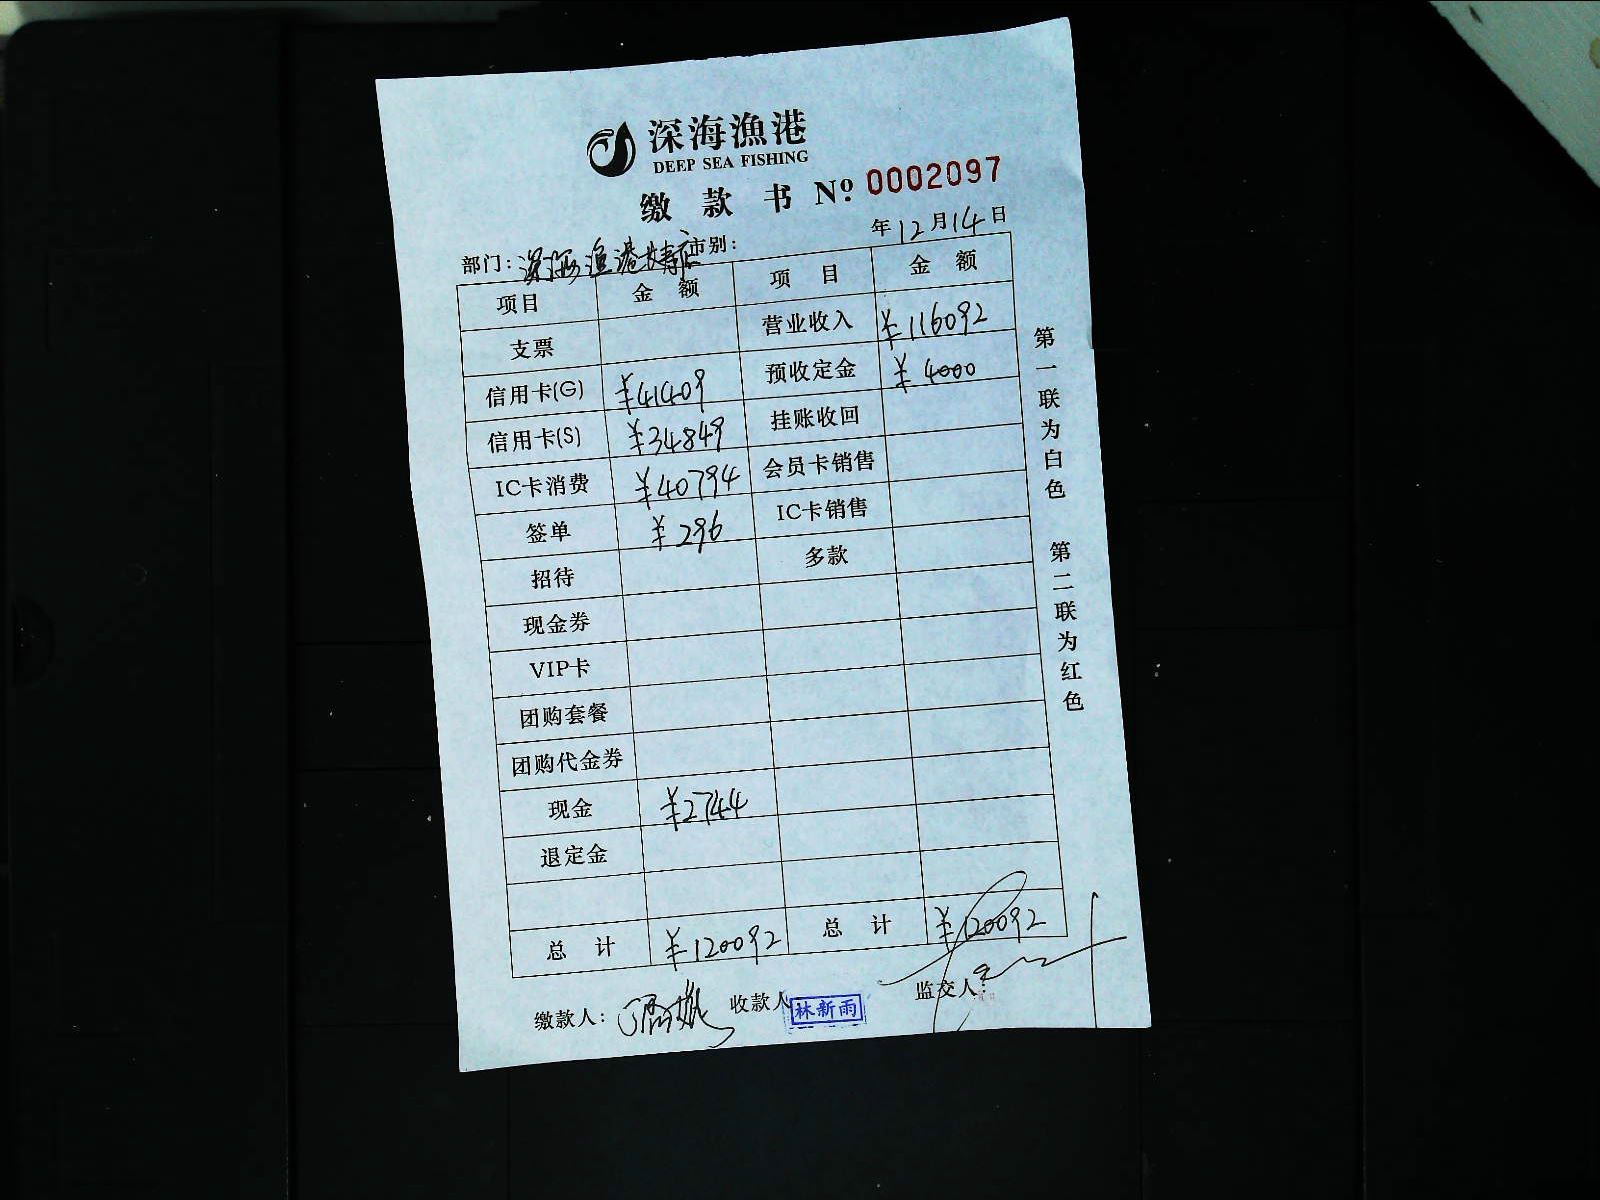 深海漁港
DEEP SEA FISHING
缴款书 Nº. 0002097
年12月14日
部门: 深海渔港长寿店 市别:
项目 金额 项目 金额
支票 营业收入 ¥116092
信用卡(G) ¥41409 预收定金 ¥4000
信用卡(S) ¥34849 挂账收回
IC卡消费 ¥40794 会员卡销售
签单 ¥296 IC卡销售
招待 多款
现金券
VIP卡
团购套餐
团购代金券
现金 ¥2744
退定金
总计 ¥120092 总计 ¥120092
缴款人: 收款人 林新雨 监交人:
第一联为白色 第二联为红色